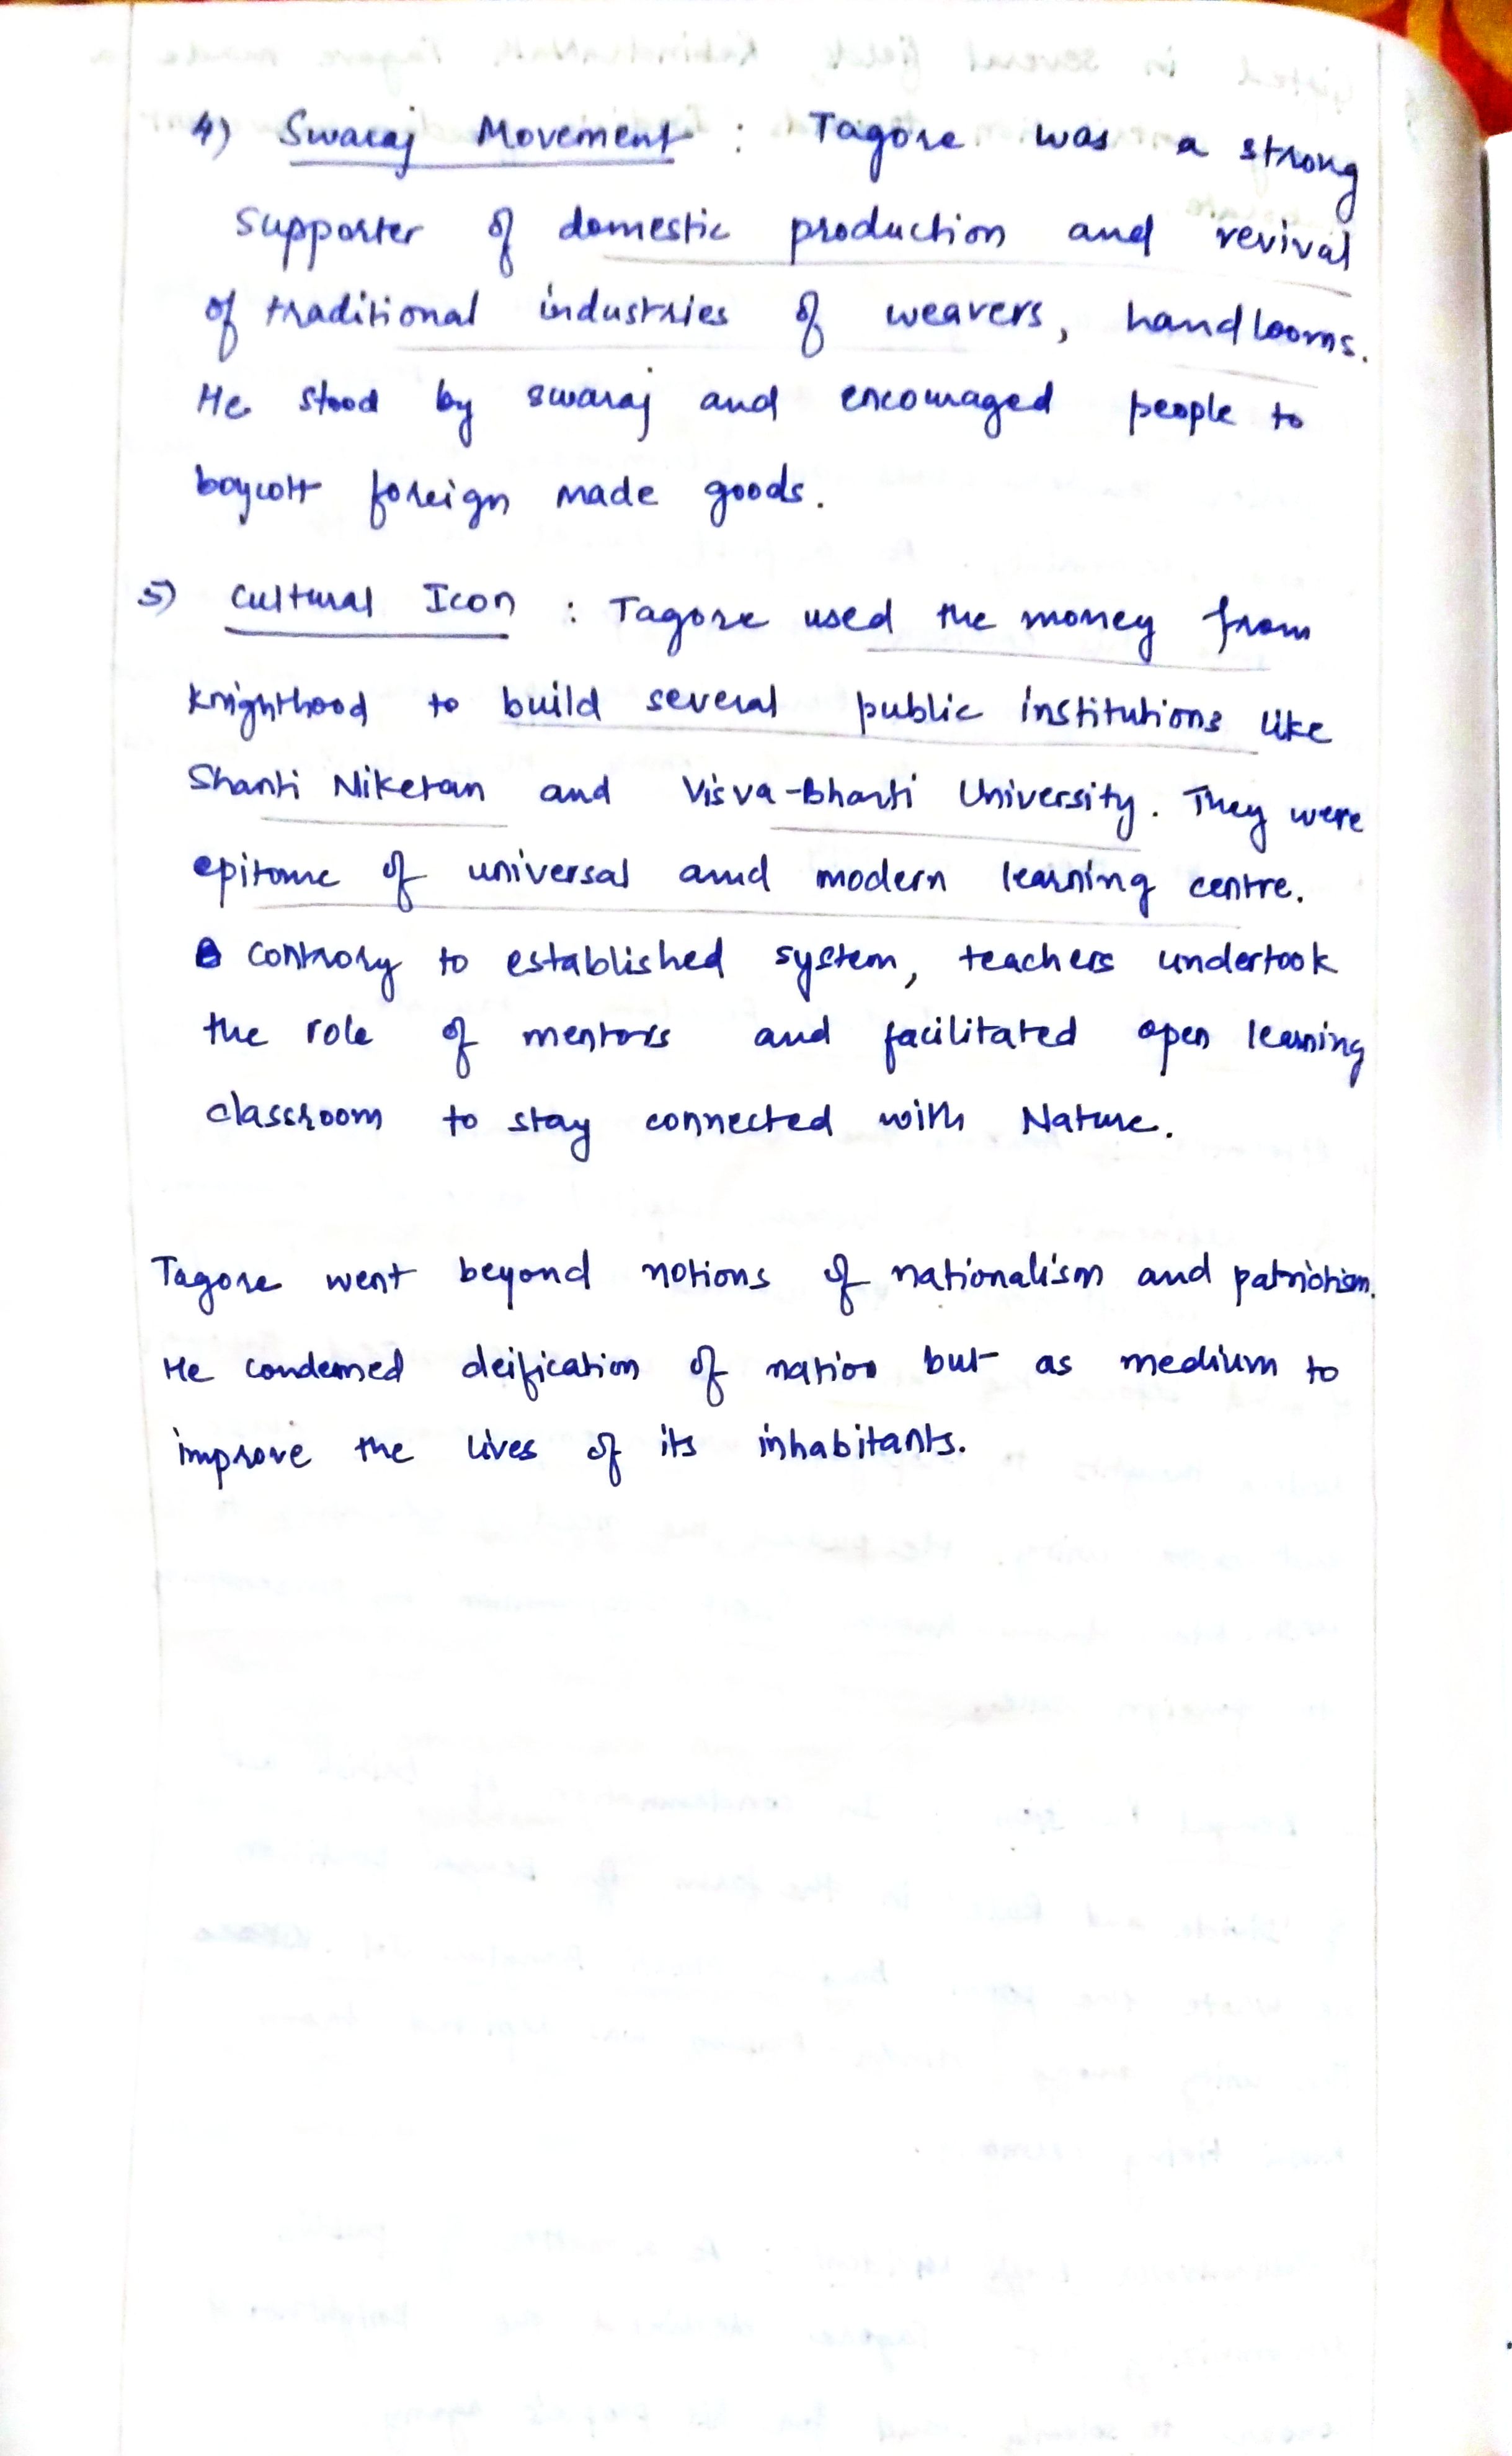 4) Swaraj Movement : Tagore was a strong
supporter of domestic production and revival
of traditional industries of weavers, handlooms.
He stood by swaraj and encouraged people to
boycott foreign made goods.
5) Cultural Icon : Tagore used the money from
Knighthood to build several public institutions like
Shanti Niketan and Visva-Bharti University. They were
epitome of universal and modern learning centre.
Controry to established system, teachers undertook
the role of mentors and facilitated open learning
classroom to stay connected with Nature.
Tagore went beyond notions of nationalism and patriotism.
He condemned deification of nation but as medium to
improve the lives of its inhabitants.